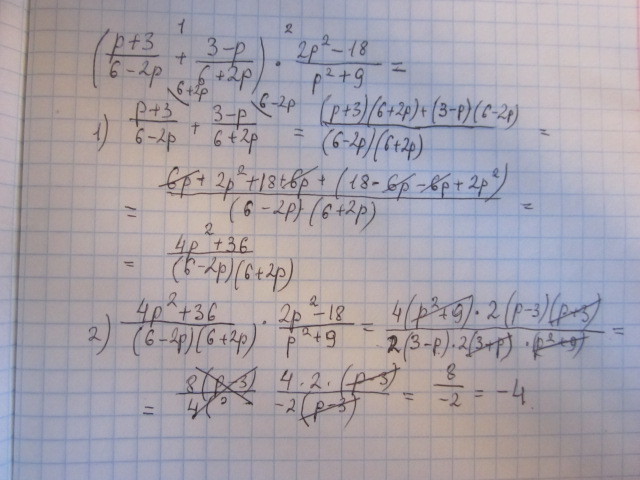 1 2
(p+3/6-2p + 3-p/6+2p) · 2p²-18/p²+9 =
1) p+3/6-2p \6+2p + 3-p/6+2p \6-2p = (p+3)(6+2p)+(3-p)(6-2p)/(6-2p)(6+2p) =
= 6p+2p²+18+6p+(18-6p-6p+2p²)/(6-2p)(6+2p) =
= 4p²+36/(6-2p)(6+2p)
2) 4p²+36/(6-2p)(6+2p) · 2p²-18/p²+9 = 4(p²+9)·2(p-3)(p+3)/2(3-p)·2(3+p)·(p²+9) =
= 4·2·(p-3)/-2(p-3) = 8/-2 = -4